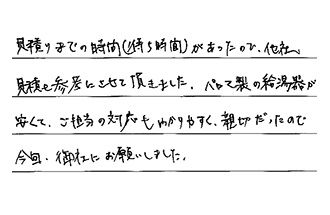 見積りまでの時間(待ち時間)があったので、他社、
見積も参考にさせて頂きました。パロマ製の給湯器が
安くて、ご担当の対応もわかりやすく、親切だったので
今回、御社にお願いしました。